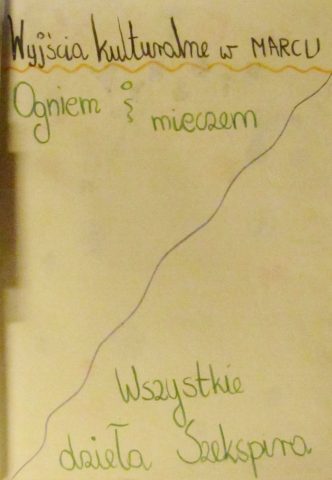 Wyjścia kulturalne w MARCU
Ogniem i mieczem
Wszystkie
dzieła Szekspira